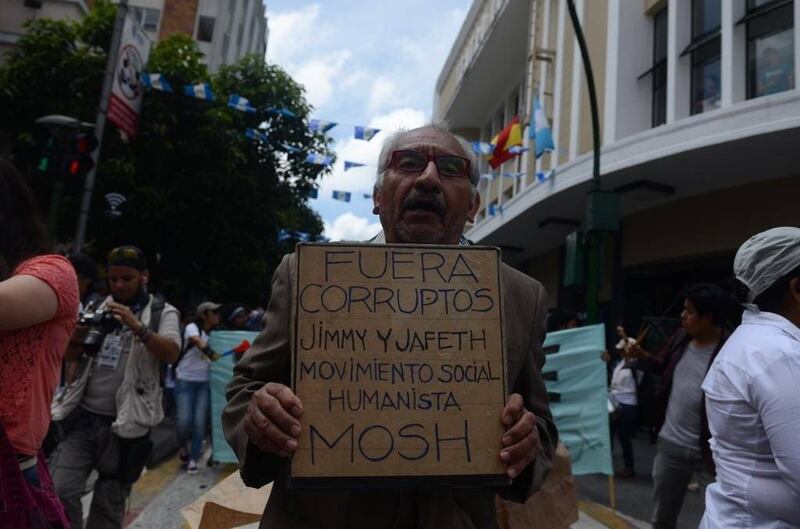 FUERA
CORRUPTOS
JIMMY Y JAFETH
MOVIMIENTO SOCIAL
HUMANISTA
MOSH